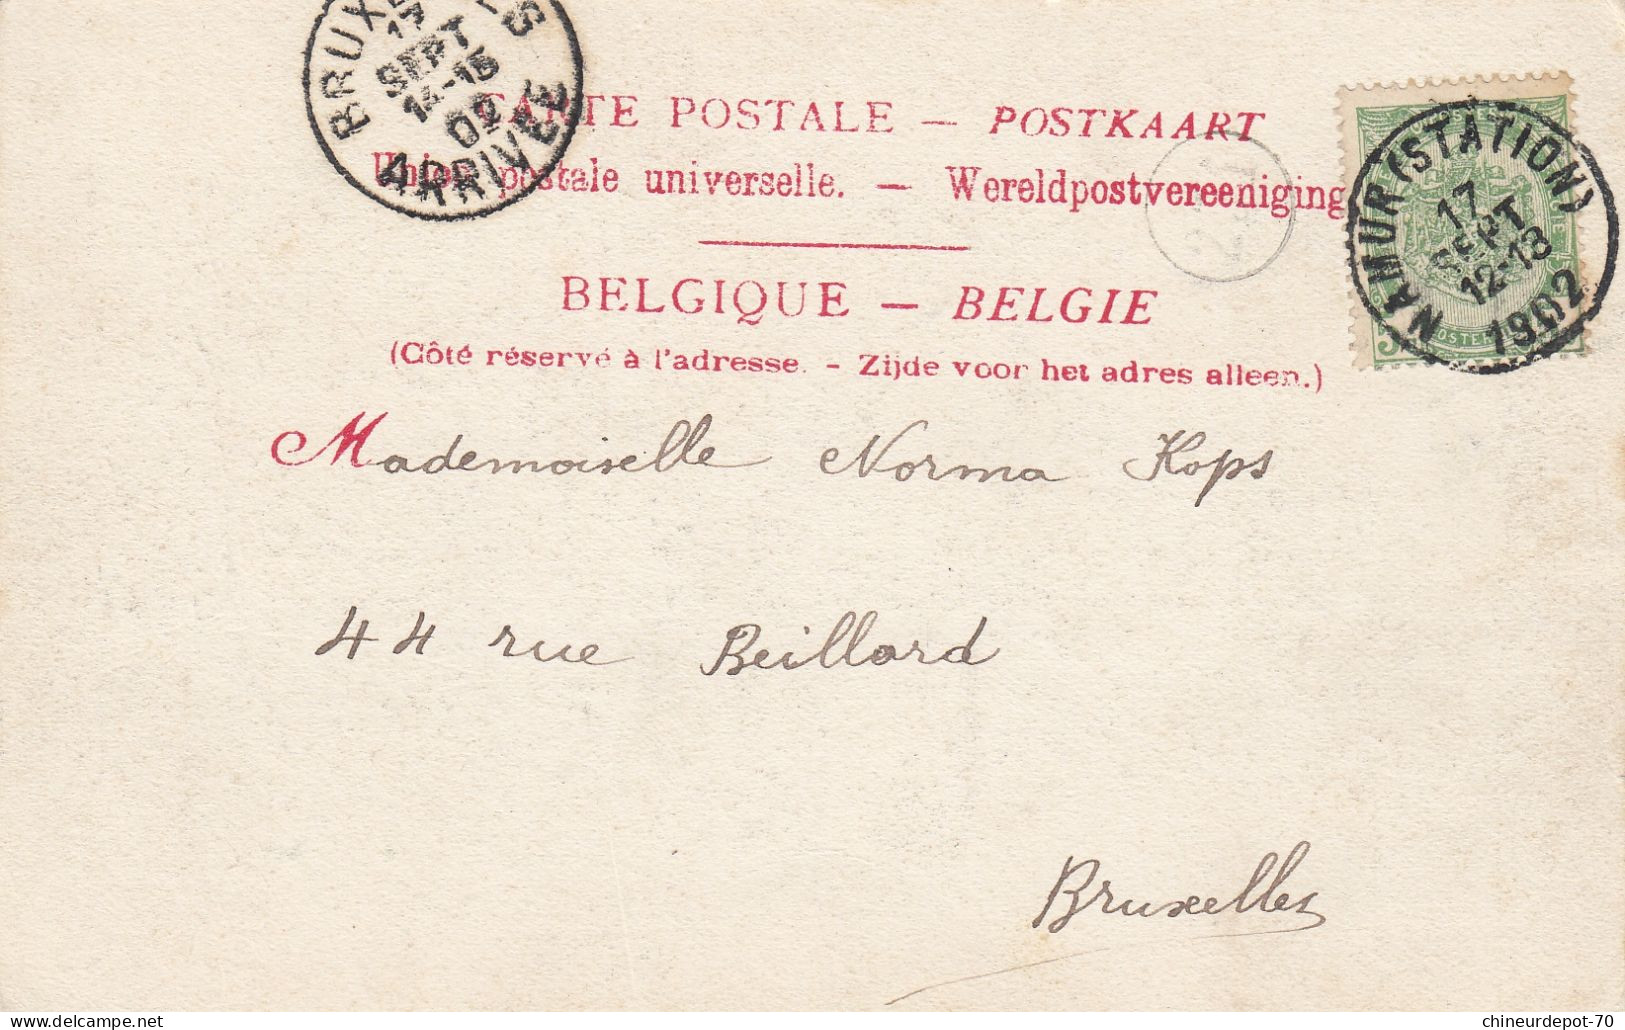 BRUXE S
17
SEPT
14-15
02
ARRIVEE
CARTE POSTALE — POSTKAART
Union postale universelle. — Wereldpostvereeniging
BELGIQUE — BELGIE
(Côté réservé à l'adresse. - Zijde voor het adres alleen.)
NAMUR (STATION)
17
SEPT
12-13
1902
Mademoiselle Norma Kops
44 rue Beillard
Bruxelles
chineurdepot-70